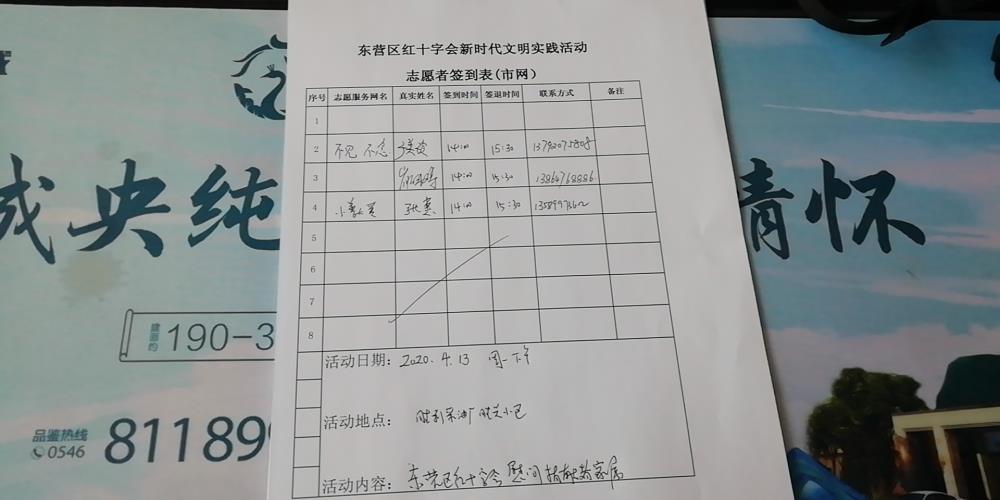 东营区红十字会新时代文明实践活动
志愿者签到表(市网)
序号 志愿服务网名 真实姓名 签到时间 签退时间 联系方式 备注
1
2 不见不念 14:00 15:30 13792075808
3 14:00 15:30 13864768886
4 14:00 15:30
5
6
7
8
活动日期: 2020.4.13 周一下午
活动地点: 胜利采油厂胜关小区
活动内容: 东营区红十字会慰问捐献者家属
央纯 情怀
190-3
品鉴热线
0546 81189